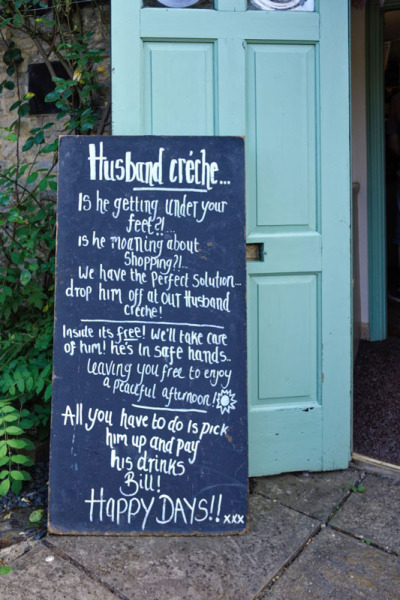 Husband crèche...
Is he getting under your
feet?!...
is he moaning about
shopping?!..
We have the perfect solution...
drop him off at our Husband
crèche!
Inside its free! We'll take care
of him! he's in safe hands..
Leaving you free to enjoy
a peaceful afternoon!
All you have to do is pick
him up and pay
his drinks
Bill!
HAPPY DAYS!! xxx